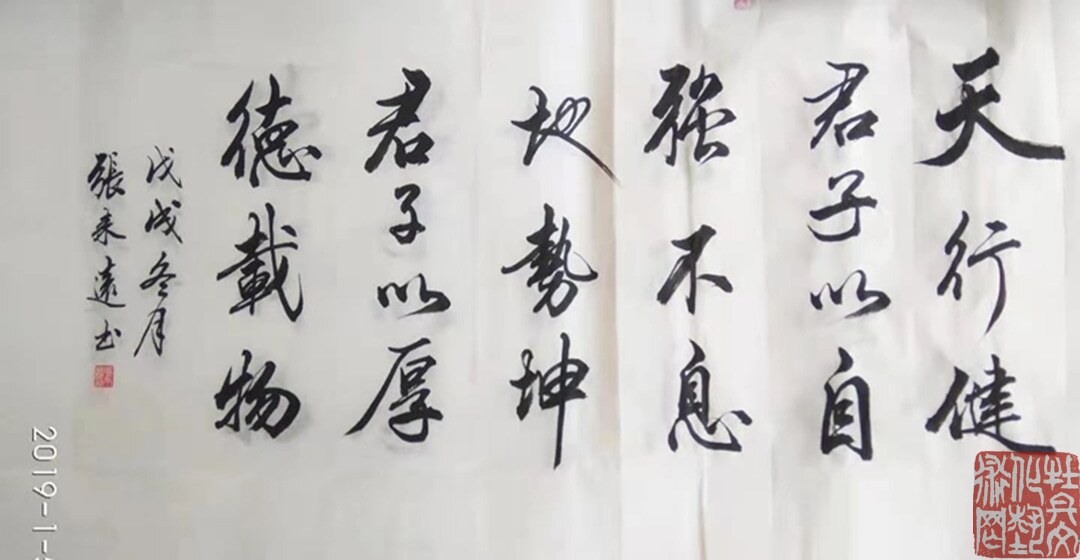 天行健
君子以自
强不息
地勢坤
君子以厚
德載物
戊戌冬月
張来遠书
2019-1-